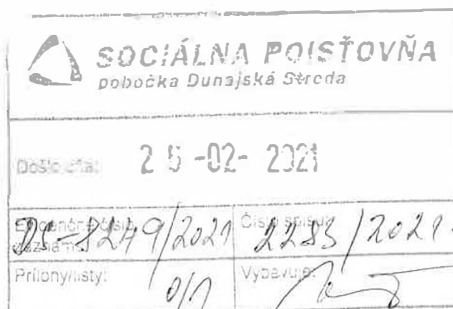 SOCIÁLNA POISŤOVŇA
pobočka Dunajská Streda
Došlo dňa: 25 -02- 2021
Evidenčné číslo Číslo spisu:
záznamu: 8249/2021 2283/2021-
Prílohy/listy: 0/1 Vybavuje: